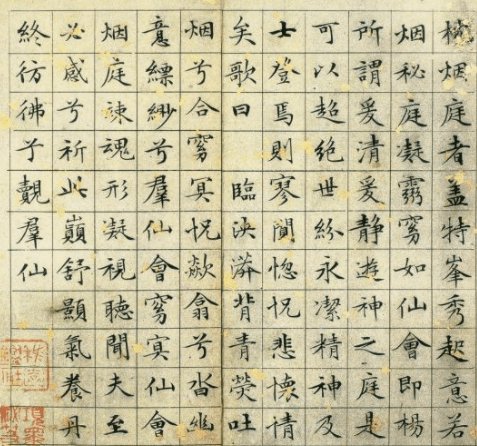 枕烟庭者盖特峯秀起意若
烟秘庭凝靄窅如仙會即楊
所謂爰清爰静遊神之庭是
可以超絕世紛永潔精神及
士登焉則寥闃惚怳悲懷情
矣歌曰 臨泱漭背青熒吐
烟兮合窅冥怳欻翕兮沓幽
意縹緲兮羣仙會窅冥仙會
烟庭竦魂形凝視聽聞夫至
必感兮祈此巔舒顥氣養丹
終彷彿于覿羣仙